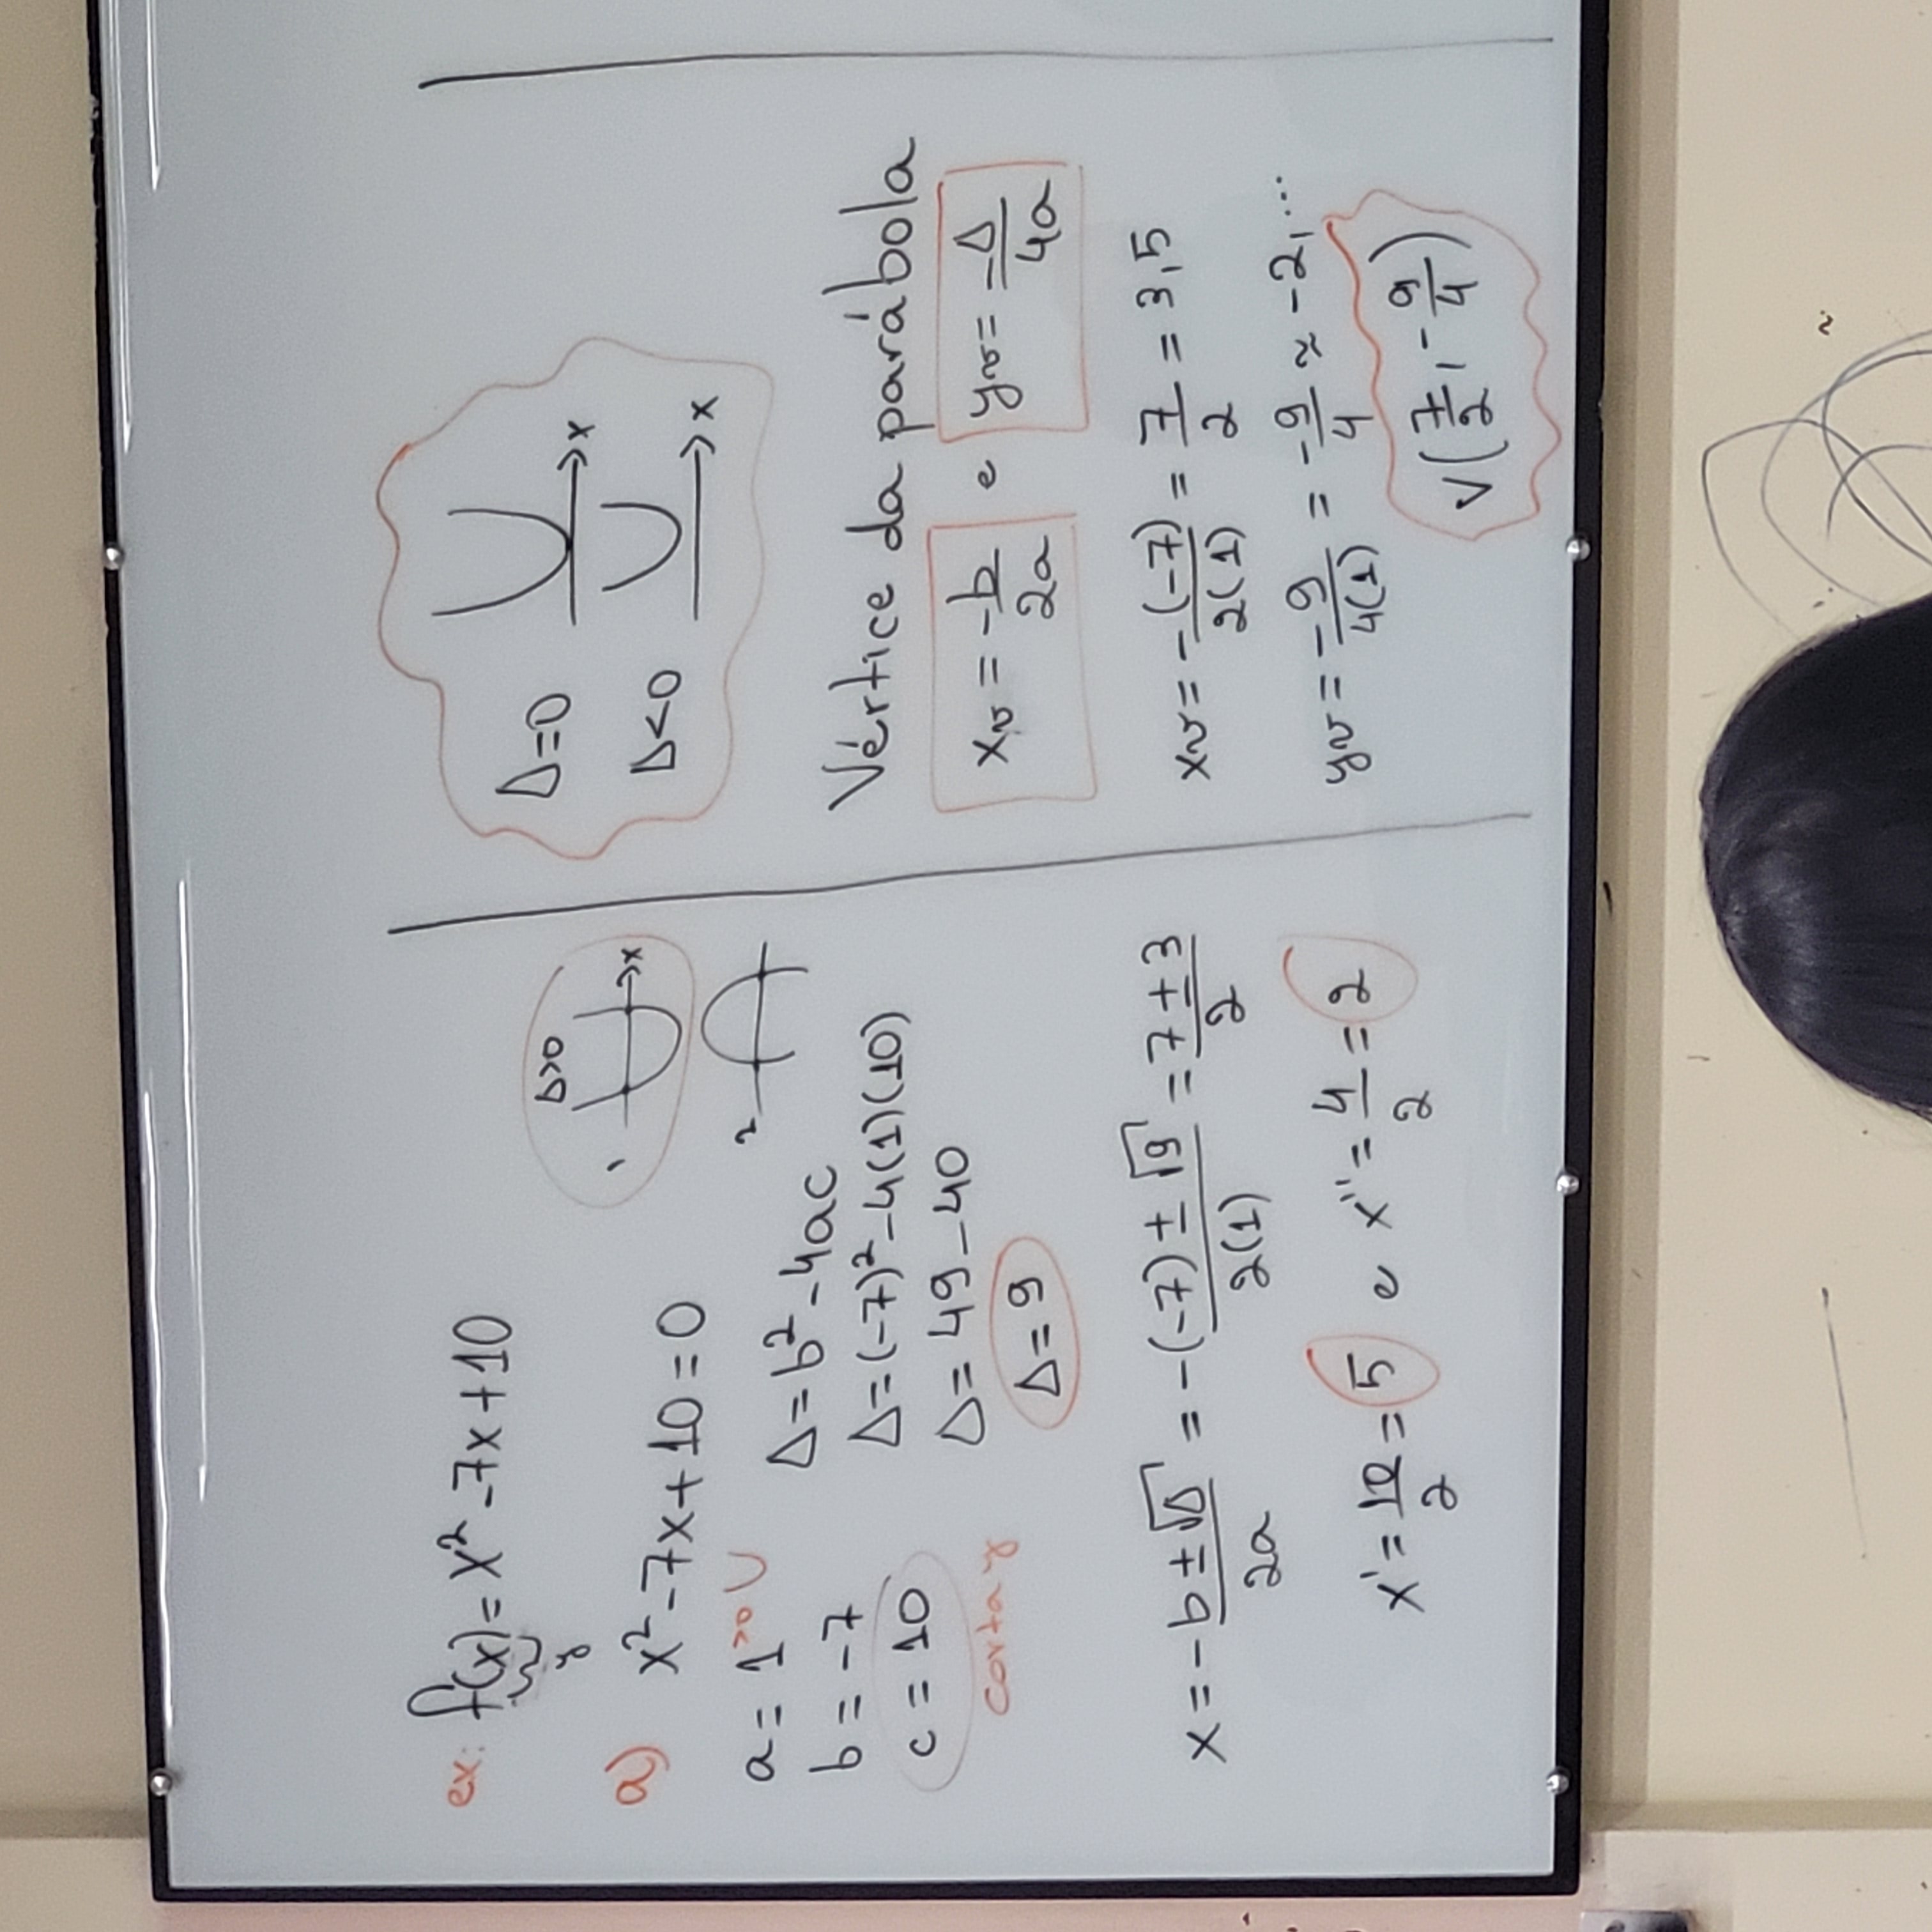 ex: f(x) = x² - 7x + 10
y
a) x² - 7x + 10 = 0
Δ>0
x
1
2
a = 1 >0 ∪
b = -7
c = 10
corta y
Δ = b² - 4ac
Δ = (-7)² - 4(1)(10)
Δ = 49 - 40
Δ = 9
x = -b ± √Δ / 2a = -(-7) ± √9 / 2(1) = 7 ± 3 / 2
x' = 10/2 = 5 e x'' = 4/2 = 2
Δ=0 x
Δ<0 x
Vértice da parábola
xv = -b/2a e yv = -Δ/4a
xv = -(-7)/2(1) = 7/2 = 3,5
yv = -9/4(1) = -9/4 ≈ -2,...
V(7/2, -9/4)